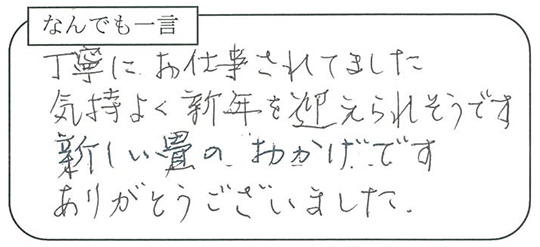 なんでも一言
丁寧に お仕事されてました
気持よく新年を迎えられそうです
新しい畳の おかげです
ありがとうございました.